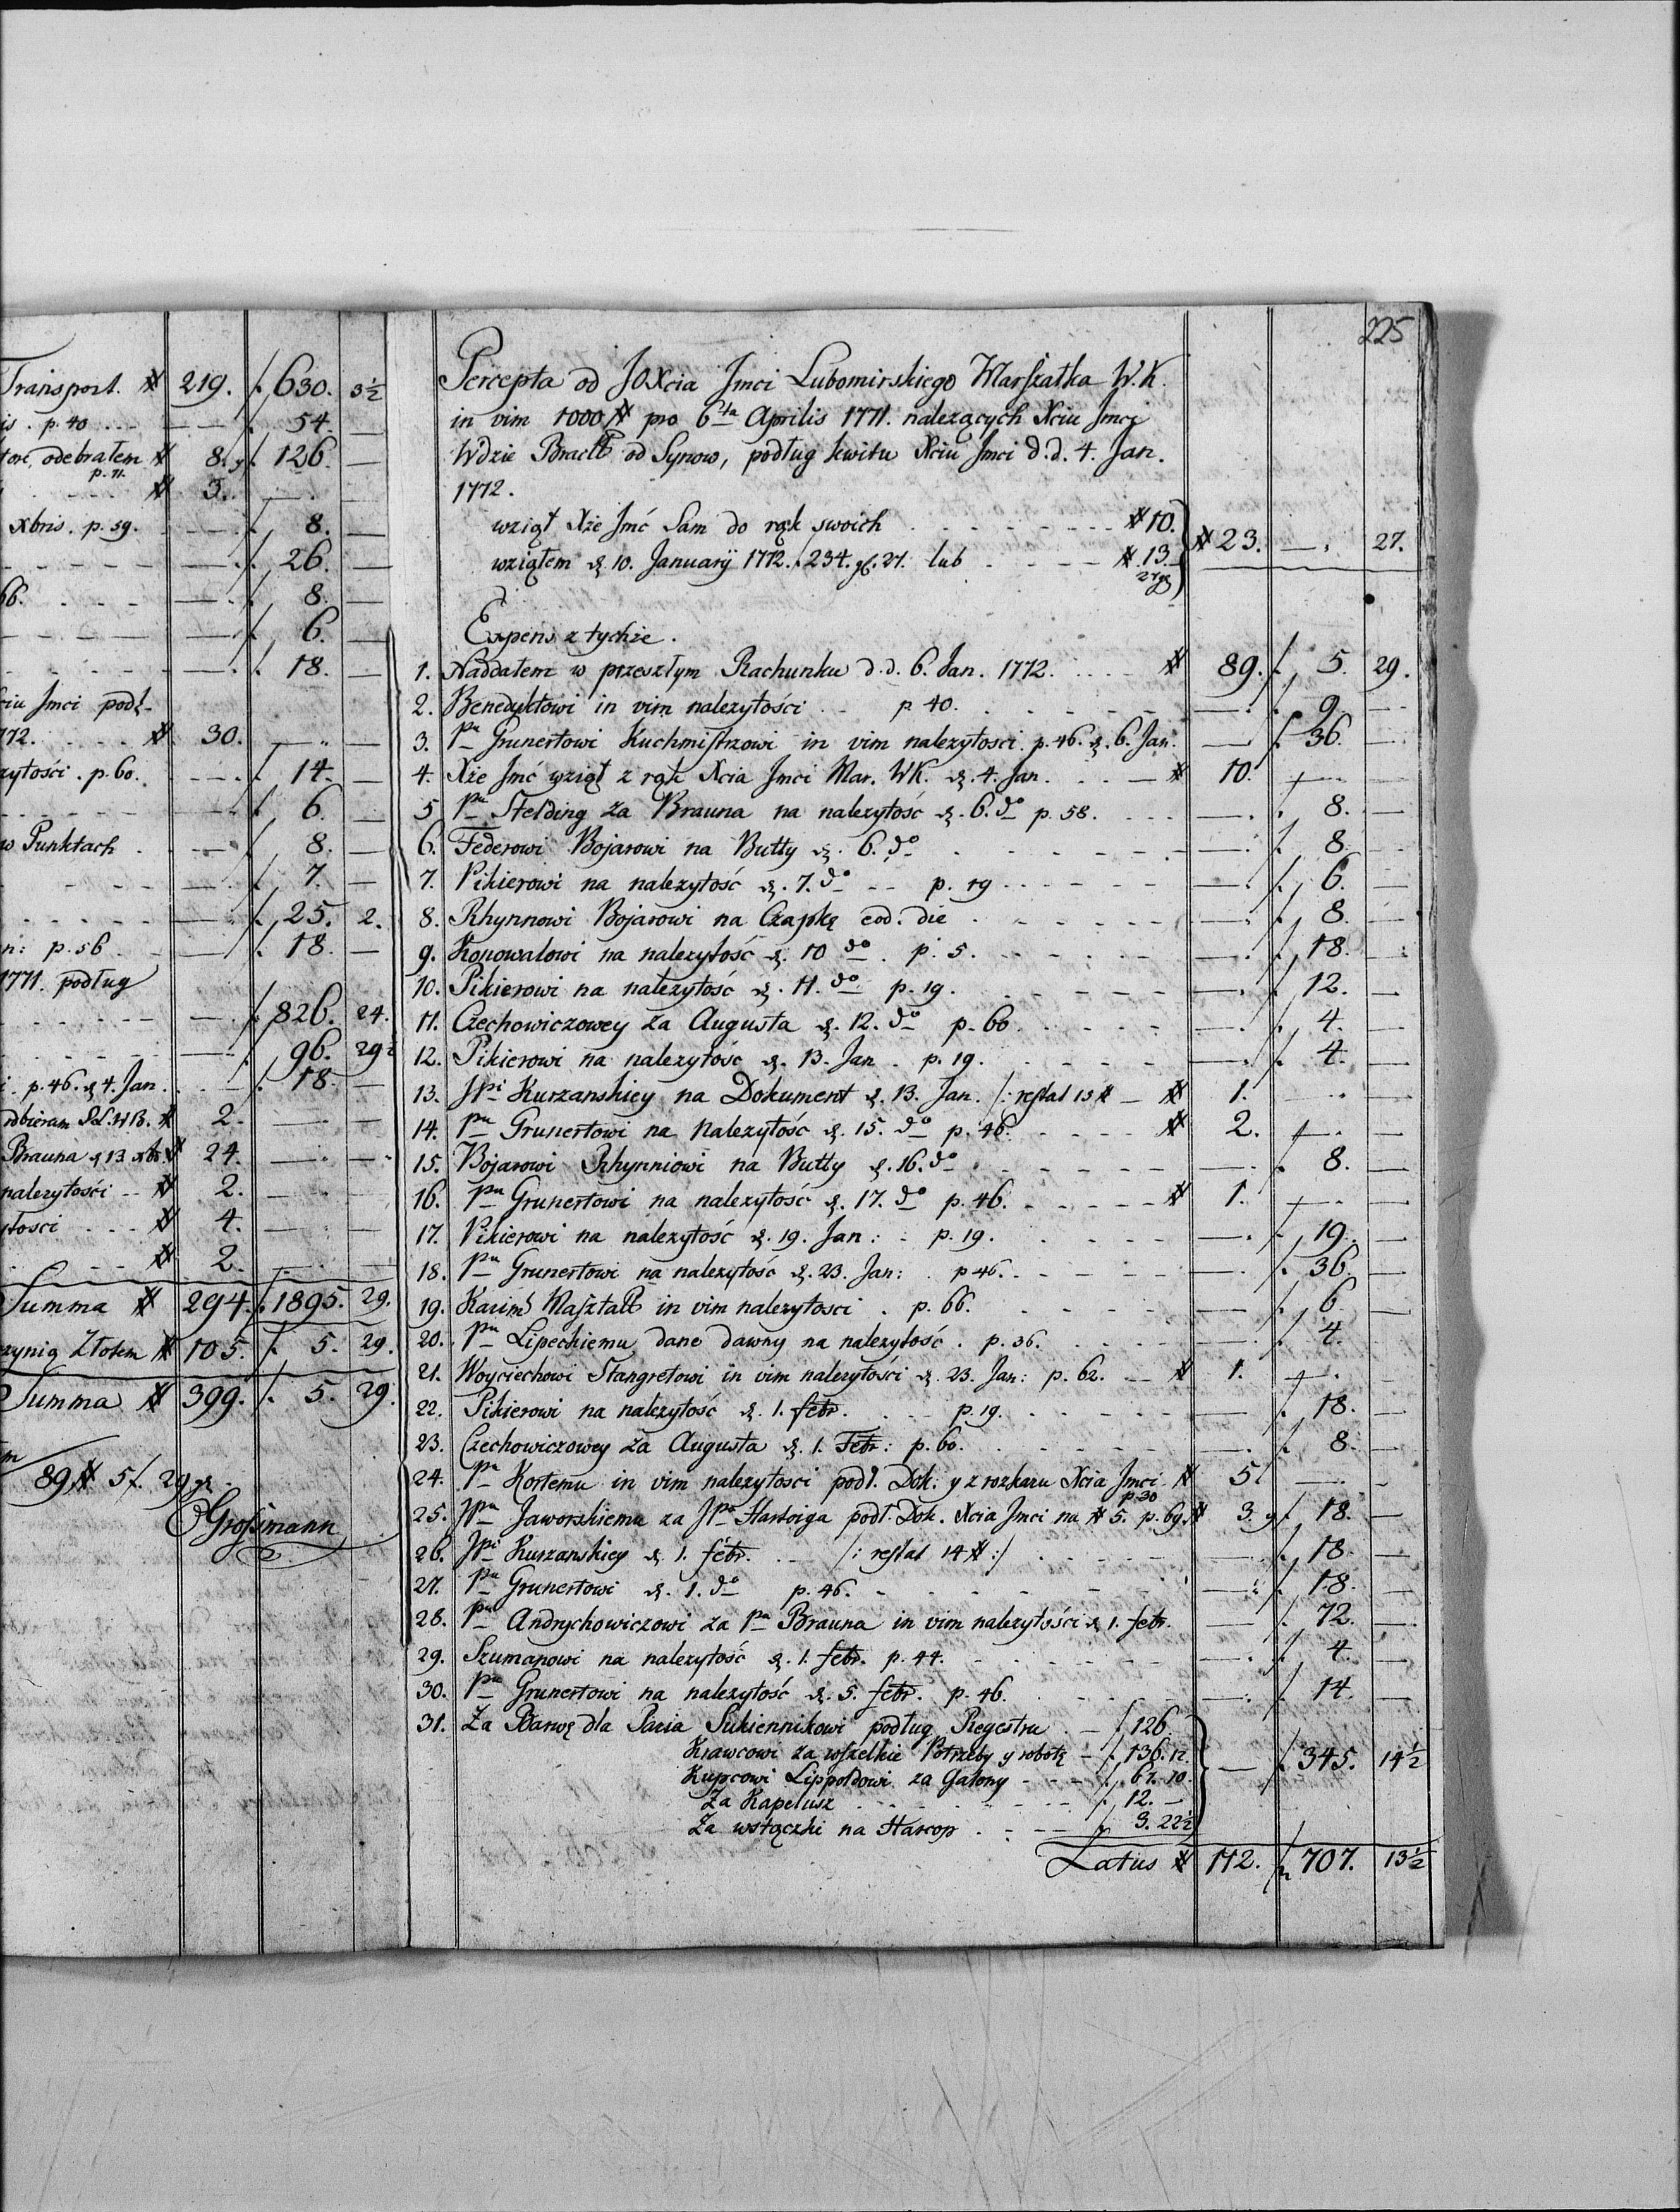 Transport. # 219. f. 630. 3½
is. p. 40 — f. 54. —
tość, odebrałem # 8. y f. 126. —
p. 71.
# 3. —
xbris. p. 59. — f. 8. —
— f. 26. —
66. — f. 8. —
— f. 6. —
— f. 18. —
ciu Jmci podł-
772. # 30. — —
zytości. p. 60. — f. 14. —
— f. 6. —
w Punktach — f. 8. —
— f. 7. —
— f. 25. 2.
n: p. 56 — f. 18. —
1771. podług
— f. 826. 24.
— f. 96. 29½
i. p. 46. d. 4. Jan. — f. 18. —
# 2. — —
Brauna d. 13 xbr. # 24. — —
nalezytości # 2. — —
ytosci # 4. — —
# 2. — —
Summa # 294. f. 1895. 29.
czynią Złotem # 105. f. 5. 29.
Summa # 399. f. 5. 29.
89 # 5 f. 29 gr.
Großmann
225
Percepta od JOXcia Jmci Lubomirskiego Marszałka W.K.
in vim 1000 # pro 6ta Aprilis 1771. nalezących Xciu Jmci
Wdzie Bracł od Synow, podług kwitu Xciu Jmci d.d. 4. Jan.
1772.
wziął Xże Jmć Sam do rąk swoich # 10.
# 23. — 27.
wziąłem d. 10. Januarÿ 1772. f. 234. gl. 27. lub # 13.
27 gr
Expens z tychże.
1. Naddałem w przeszłym Rachunku d.d. 6. Jan. 1772. # 89. f. 5. 29.
2. Benedyktowi in vim nalezytości p 40. — f. 9. —
3. Pu Grunertowi Kuchmistrzowi in vim nalezytosci p. 46. d. 6. Jan. — f. 36. —
4. Xże Jmć wziął z rąk Xcia Jmci Mar. WK. d. 4. Jan. # 10. — —
5 Pu Stelding za Brauna na nalezytość d. 6. do p. 58. — f. 8. —
6. Federowi Bojarowi na Butty d. 6. do — f. 8. —
7. Pikierowi na nalezytość d. 7. do p. 19 — f. 6. —
8. Rhynnowi Bojarowi na Czapkę eod. die — f. 8. —
9. Konowalowi na nalezytość d. 10 do p. 5. — f. 18. —
10. Pikierowi na nalezytość d. 11. do p. 19. — f. 12. —
11. Czechowiczowey za Augusta d. 12. do p. 60 — f. 4. —
12. Pikierowi na nalezytość d. 13. Jan. p. 19. — f. 4. —
13. JPi Kurzanskiey na Dokument d. 13. Jan. /: restat 15 # — # 1. — —
14. Pu Grunertowi na Nalezytość d. 15. do p. 46. # 2. f. — —
15. Bojarowi Rhynniowi na Butty d. 16. do — f. 8. —
16. Pu Grunertowi na nalezytość d. 17. do p. 46. # 1. — —
17. Pikierowi na nalezytość d. 19. Jan: p. 19. — f. 19. —
18. Pu Grunertowi na nalezytość d. 23. Jan: p 46. — f. 36. —
19. Kazim Maształ in vim nalezytosci. p. 66. — f. 6. —
20. Pu Lipeckiemu, dane dawny na nalezytość. p. 36. — f. 4. —
21. Woyciechowi Stangretowi in vim nalezytości d. 23. Jan: p. 62. — # 1. — —
22. Pikierowi na nalezytość d. 1. febr. p. 19. — f. 18. —
23. Czechowiczowey za Augusta d. 1. Febr: p. 60. — f. 8. —
24. Pu Kortemu in vim nalezytosci podł. Dok. y z rozkazu Xcia Jmci # 5. — —
p. 30
25. JPu Jaworskiemu za JPa Hartwiga podł. Dok. Xcia Jmci na # 5. p. 69. # 3. y f. 18. —
26. JPi Kurzanskiey d. 1. febr. — /: restat 14 # :/ — f. 18. —
27. Pu Grunertowi d. 1. do p. 46. — f. 18. —
28. Pu Andrychowiczowi za Pa Brauna in vim nalezytości d. 1. febr. — f. 72. —
29. Szumanowi na nalezytość d. 1. febr. p. 44. — f. 4. —
30. Pu Grunertowi na nalezytość d. 5. febr. p. 46. — f. 14. —
31. Za Barwę dla Pazia Sukiennikowi podług Regestru — f. 126.
Krawcowi za wszelkie Potrzeby y robotę — f. 136. 12.
— f. 345. 14½
Kupcowi Lippoldowi za Galony — f. 67. 10.
Za Kapelusz — f. 12. —
Za wstączki na Harcop — f. 3. 22½
Latus # 112. f. 707. 13½